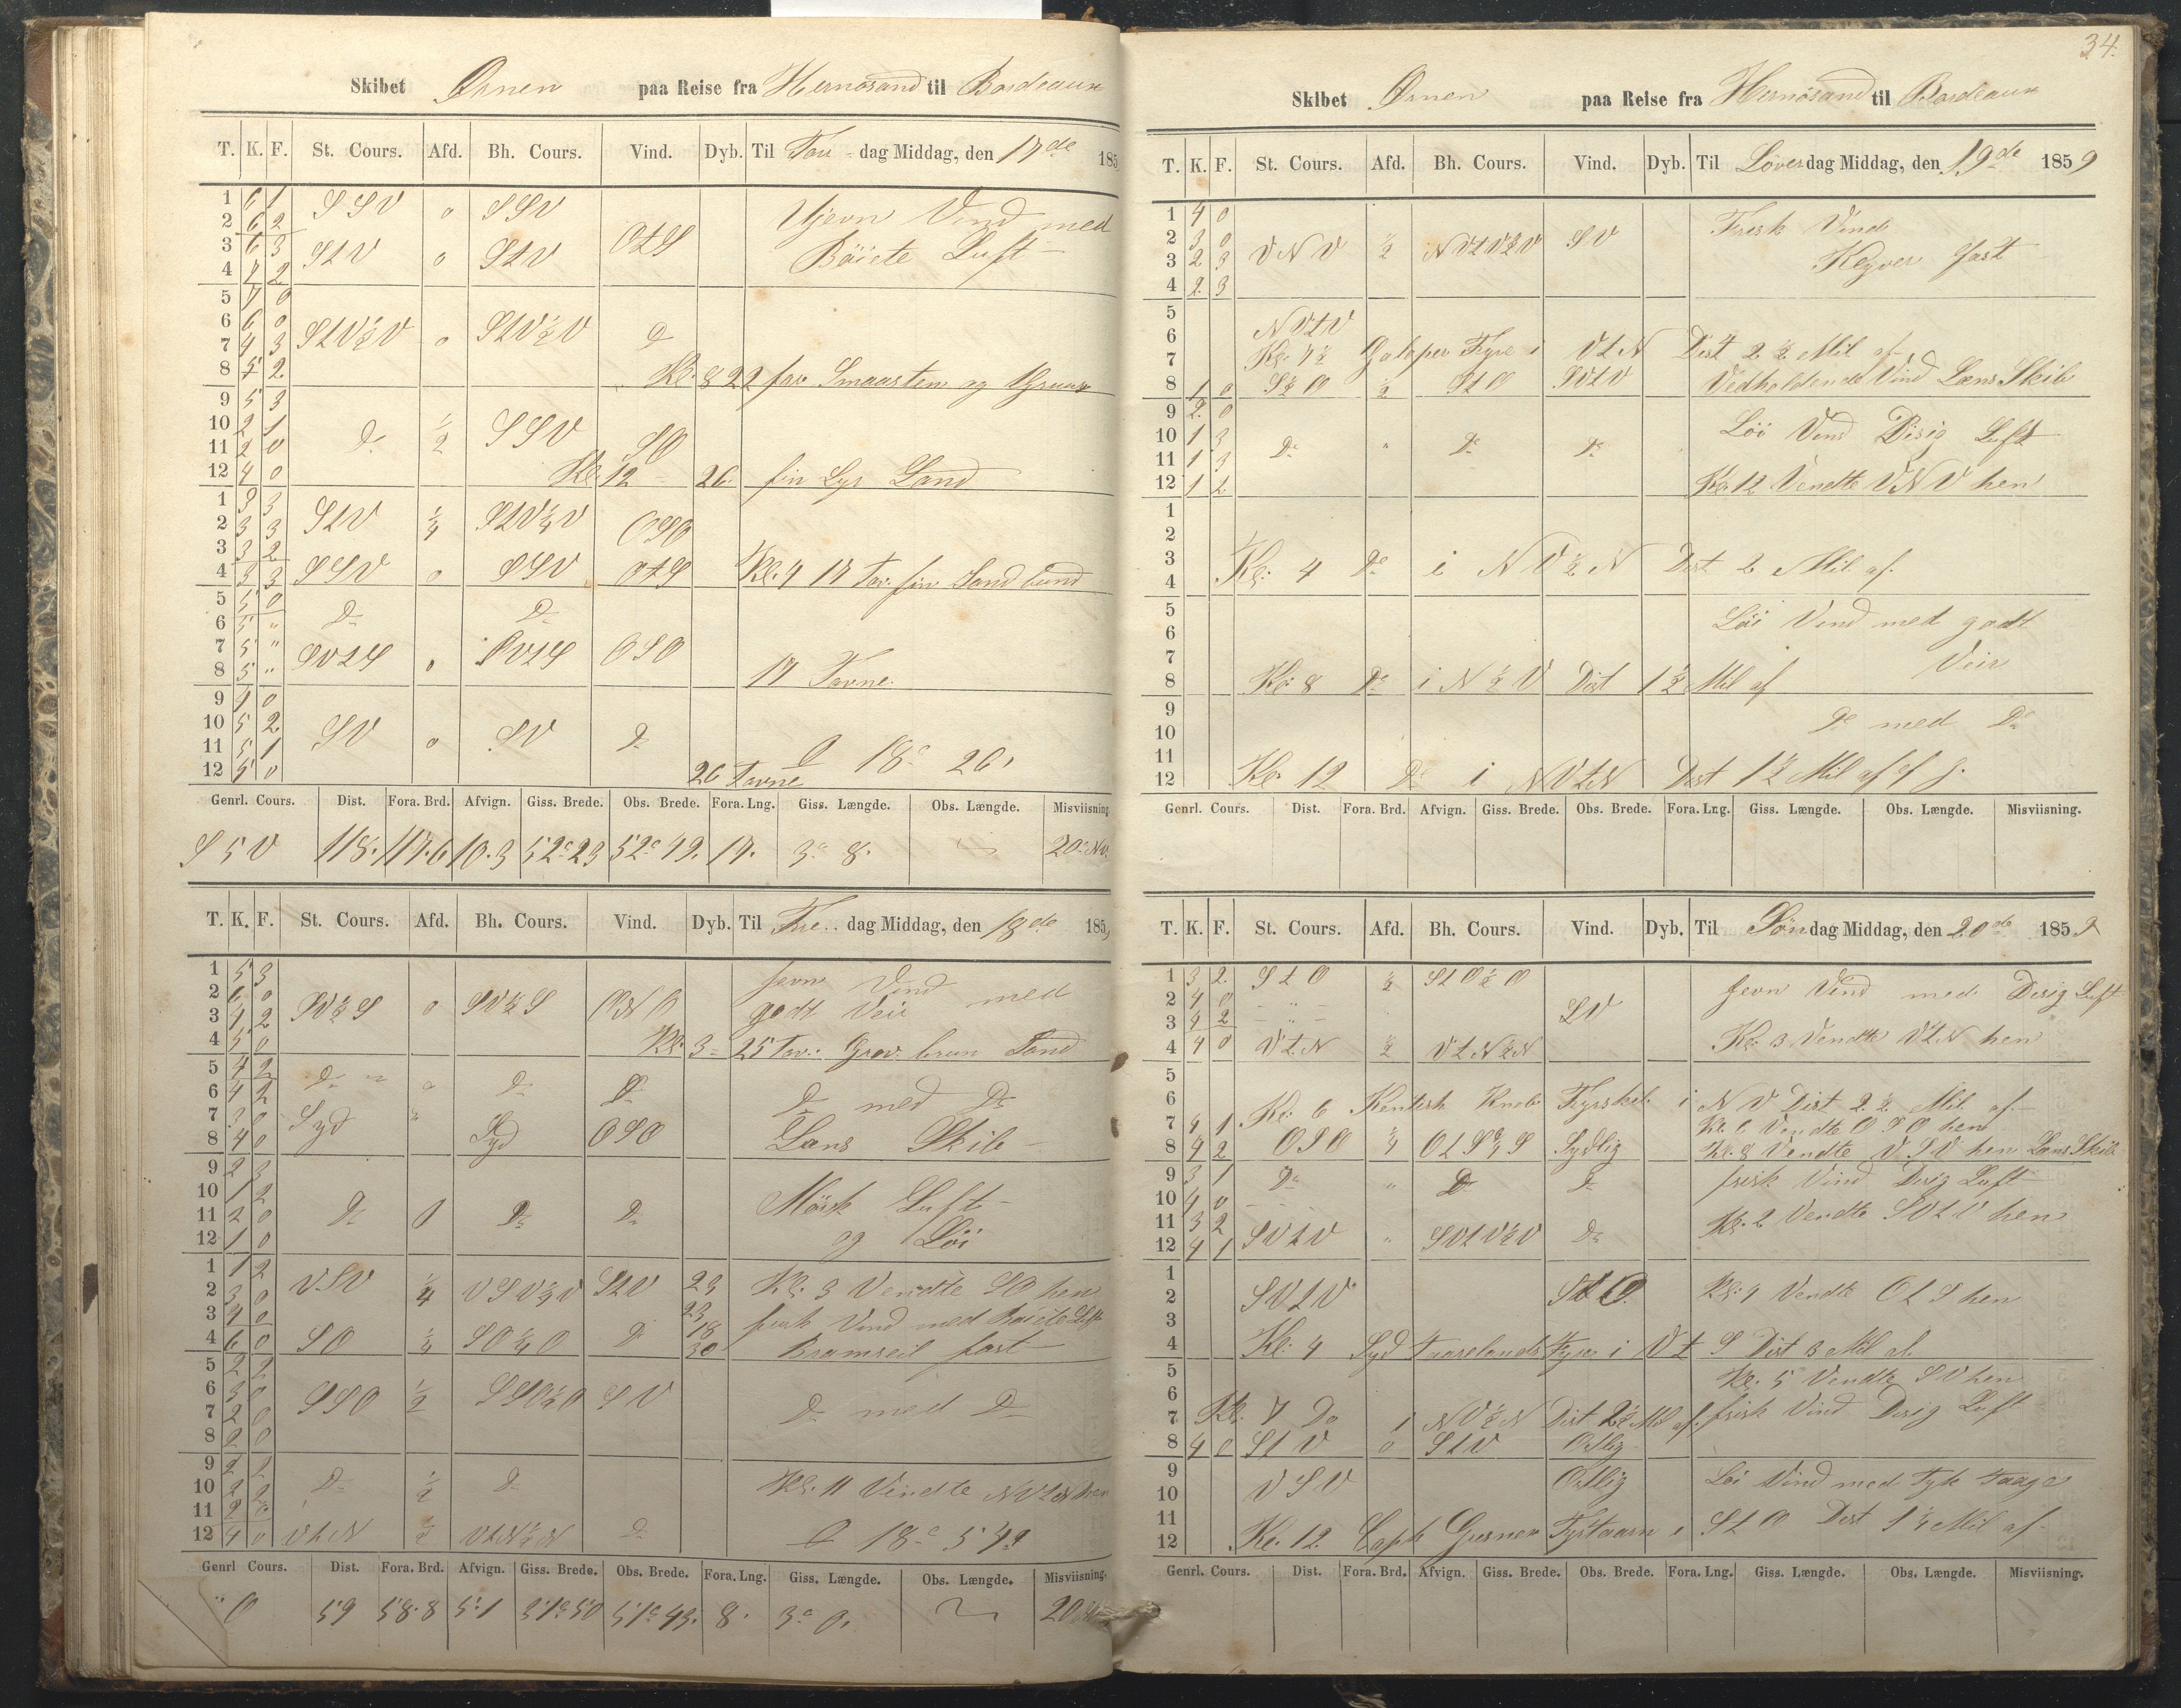 Skibet Ørnen paa Reise fra Hernösand til Bordeaux
T. K. F. St. Cours. Afd. Bh. Cours. Vind. Dyb. Til Tors-dag Middag, den 17de 185
1 6 1 SSV 0 SSV Ujevn Vind med
2 6 2 OtS
3 6 3 StV 0 StV Böiete Luft
4 7 2
5 7 0
6 6 0 StV½V 0 StV½V D
7 4 3
8 5 2 Kl. 8 22 fav Smaasten og Gruus
9 5 3
10 2 1 D ½ SSV SO
11 2 0
12 4 0 Kl. 12 26 fin Lys Sand
1 3 3 StV ¼ StV¼V OSO
2 3 3
3 3 2
4 3 3 SSV 0 SSV OtS Kl. 4 17 Fav. fin Sand bund
5 5 0 D D
6 5 "
7 5 " SVtS 0 SVtS OSO
8 5 " 17 Favne.
9 4 0
10 5 2 SV 0 SV D
11 5 1
12 5 0 26 Favne 18° 26'
Genrl. Cours. Dist. Fora. Brd. Afvign. Giss. Brede. Obs. Brede. Fora. Lng. Giss. Længde. Obs. Længde. Misviisning.
S 5 V 118. 117.6 10.3 52° 23 52° 42. 17. 3° 8. 20° NV.
T. K. F. St. Cours. Afd. Bh. Cours. Vind. Dyb. Til Fre-dag Middag, den 18de 185
1 5 3 Jevn Vind med
2 6 0 SV½S 0 SV½S ONO godt Veir
3 4 2
4 5 0 Kl. 3 25 Fav. Grov brun Sand
5 4 2 D 0 D D
6 4 2 D med D
7 3 0 Syd " Syd OSO
8 4 0 Læns Skib
9 2 3
10 1 2 Mörk Luft
11 2 0 D 0 D D
12 1 0 og Löi
1 1 2 VSV ¼ VSV¼V StV 23 Kl. 3 Vendte SO hen
2 3 0
3 4 0 23 frisk Vind med Böiete Luft
4 6 0 SO ¼ SO¼O D 18 30 Bramseil fast
5 2 2
6 3 0 SSO ½ SSO½O SV
7 2 0 D med D
8 2 0
9 2 2
10 2 2 D ½ D Kl. 11 Vendte NVtN hen
11 2 2
12 4 0 VtN ½ VtN½N D 18° 54
Genrl Cours. Dist. Fora. Brd. Afvign. Giss. Brede. Obs. Brede. Fora. Lng. Giss. Længde. Obs. Længde. Misviisning.
" O 59 58.8 5.1 51° 50 51° 43. 8. 3° 0. 20
34.
Skibet Ørnen paa Reise fra Hernösand til Bordeaux
T. K. F. St. Cours. Afd. Bh. Cours. Vind. Dyb. Til Löverdag Middag, den 19de 1859
1 4 0 Frisk Vind
2 3 0 VNV ½ NVtV½V SV
3 2 3 Klyver fast
4 2 3
5
6 NVtV
7 Kl. 7½ Galaper Fyre i VtN Dist 2½ Mil af
8 1 0 S½O ½ StO SVtV Vedholdende Vind Læns Skib
9 2 0
10 1 3 D " D D Löi Vind Disig Luft
11 1 3
12 1 2 Kl. 12 Vendte VNV hen
1
2
3
4 Kl. 4 D i NV½N Dist 2 Mil af.
5
6 Löi Vind med godt
7 Veir
8 Kl. 8 D i N½V Dist 1½ Mil af
9
10 D med D
11
12 Kl. 12 D i NVtN Dist 1½ Mil af
Genrl. Cours. Dist. Fora. Brd. Afvign. Giss. Brede. Obs. Brede. Fora. Lng. Giss. Længde. Obs. Længde. Misviisning.
T. K. F. St. Cours. Afd. Bh. Cours. Vind. Dyb. Til Söndag Middag, den 20de 1859
1 3 2 StO ½ StO½O Jevn Vind med Disig Luft
2 4 0 - " - SV
3 4 2 - " -
4 4 0 VtN ½ VtN½N Kl. 3 Vendte VtN hen
5
6 Kl. 6 Kentish Knob Fyrskib i NV Dist 2½ Mil af.
7 4 1 Kl. 6 Vendte OSO hen
8 4 2 OSO ¼ OtS¾S Sydlig Kl. 8 Vendte VSV hen Læns Skib
9 3 1 D " D D frisk Vind Disig Luft
10 4 0
11 3 2 SVtV " SVtV½V D Kl. 2 Vendte SVtV hen
12 4 1
1
2 SVtV StO. Kl. 4 Vendte OtS hen
3
4 Kl. 4 Syd Faarelands Fyre i Vt S Dist 3 Mil af.
5 Kl. 5 Vendte SV hen
6
7 Kl. 7 Do i NV½N Dist 2½ Mil af. frisk Vind Disig Luft
8 4 0 StV 0 StV Ostlig
9 VSV Ostlig Löi Vind med Tyk Taage
10
11
12 Kl. 12. Fyrtaarn i StO Dist 1¼ Mil af
Genrl. Cours. Dist. Fora. Brd. Afvign. Giss. Brede. Obs. Brede. Fora. Lng. Giss. Længde. Obs. Længde. Misviisning.